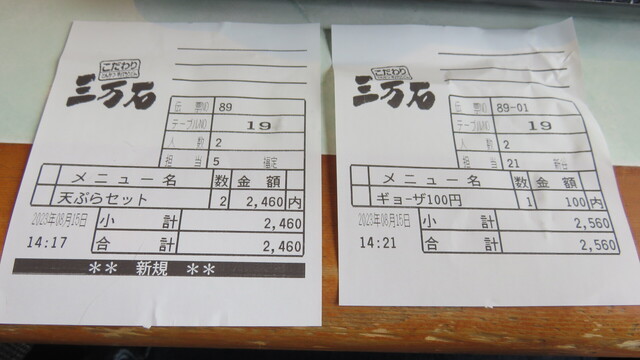 こだわり
三万石
伝票NO 89
テーブルNO 19
人数 2
担当 5 福定
メニュー名 数 金額
天ぷらセット 2 2,460内
2023年08月15日
14:17
小計 2,460
合計 2,460
** 新規 **
こだわり
三万石
伝票NO 89-01
テーブルNO 19
人数 2
担当 21 新谷
メニュー名 数 金額
ギョーザ100円 1 100内
2023年08月15日
14:21
小計 2,560
合計 2,560